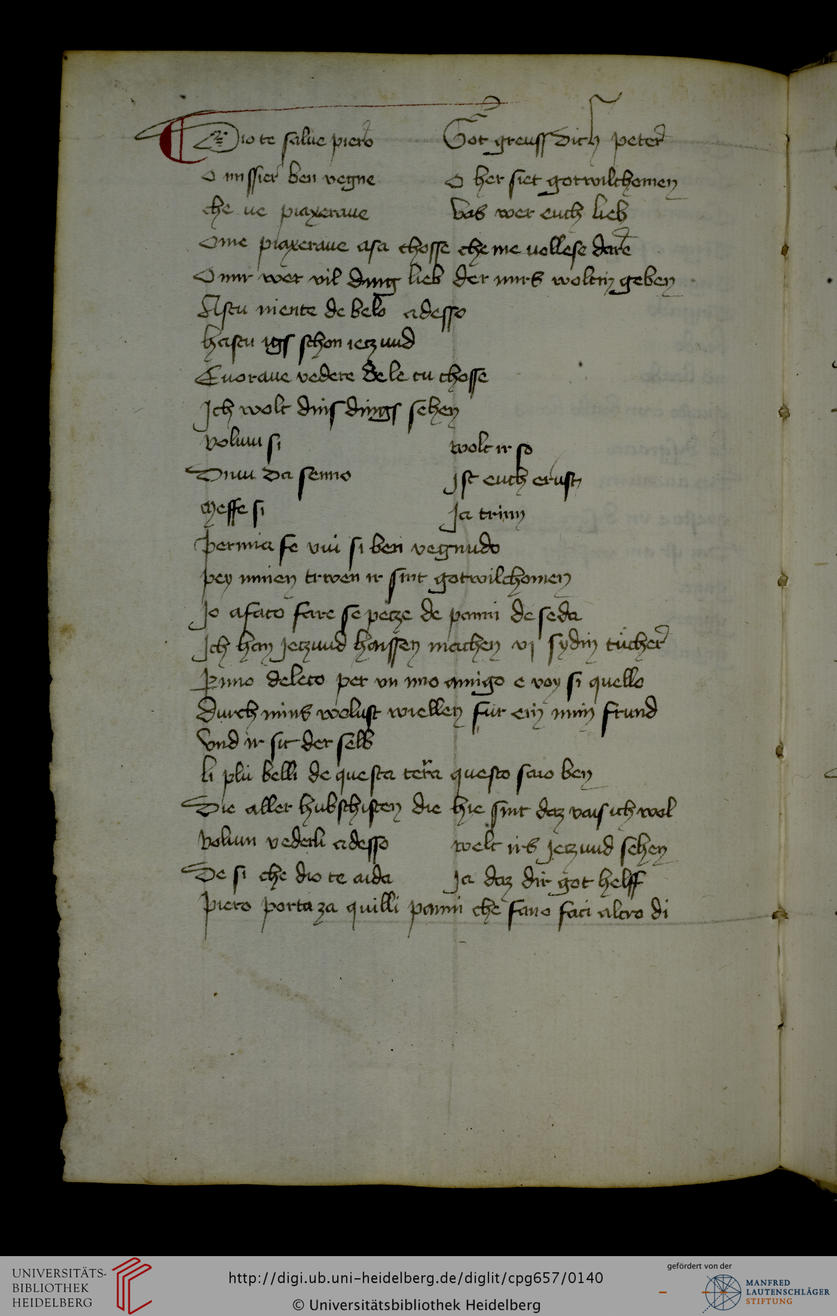 Dio te salue piero Got greuss dich peter
O missier ben vegne O her siet gotwilchomen
che ue piaxeraue Vas wer euch lieb
O me piaxeraue asa chosse che me uollese dare
O mir wer vil ding lieb der mirs woltn geben
Astu niente de belo adesso
hastu igs schon ieczund
E uoraue vedere de le tu chosse
Ich wolt dins dings sehen
voliuu si wolt ir so
Diuu da senno Ist euch ernst
Messe si Ja triuu
per mia fe vui si ben vegnudo
pey minen trwen ir sint gotwilchomen
Jo a fato fare se pecze de panni de seda
Ich han Jetzund haissen machen vj sydin tücher
p uno deleto per un mio amigo e voy si quello
Durch mins wolust wiellen für ein min frund
Vnd ir sit der selb
li plu belli de questa terra questo saio ben
Die aller hubschisten die hie sint daz vais ich wol
voliuu vederli adesso welt irs Jetzund sehen
De si che dio te aida Ja daz dir got helff
piero porta za quilli panni che fano faci altro di
UNIVERSITÄTS-
BIBLIOTHEK
HEIDELBERG
http://digi.ub.uni-heidelberg.de/diglit/cpg657/0140
© Universitätsbibliothek Heidelberg
gefördert von der
MANFRED
LAUTENSCHLÄGER
STIFTUNG